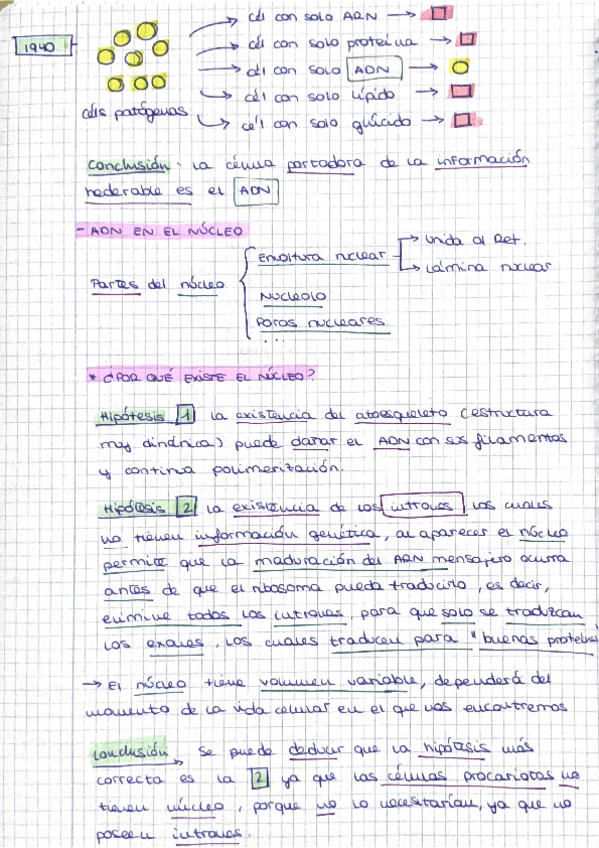 1940
cél con solo ARN →
cél con solo proteína →
cél con solo ADN →
cél con solo lípido →
cél con solo glúcido →
céls patógenas
Conclusión: La célula portadora de la información
hederable es el ADN
- ADN EN EL NÚCLEO
Partes del núcleo
Envoltura nuclear
→ Unida al Ret.
→ Lámina nuclear
Nucleolo
Poros nucleares
...
* ¿POR QUÉ EXISTE EL NÚCLEO?
Hipótesis 1 La existencia del citoesqueleto (estructura
muy dinámica) puede dañar el ADN con sus filamentos
y continua polimerización.
Hipótesis 2 La existencia de los intrones, los cuales
no tienen información genética, al aparecer el núcleo
permite que la maduración del ARN mensajero ocurra
antes de que el ribosoma pueda traducirlo, es decir,
elimine todos los intrones, para que solo se traduzcan
los exones, los cuales traducen para "buenas proteínas"
→ El núcleo tiene volumen variable, dependerá del
momento de la vida celular en el que nos encontremos
Conclusión se puede deducir que la hipótesis más
correcta es la 2 ya que las células procariotas no
tienen núcleo, porque no lo necesitarían, ya que no
poseen intrones.